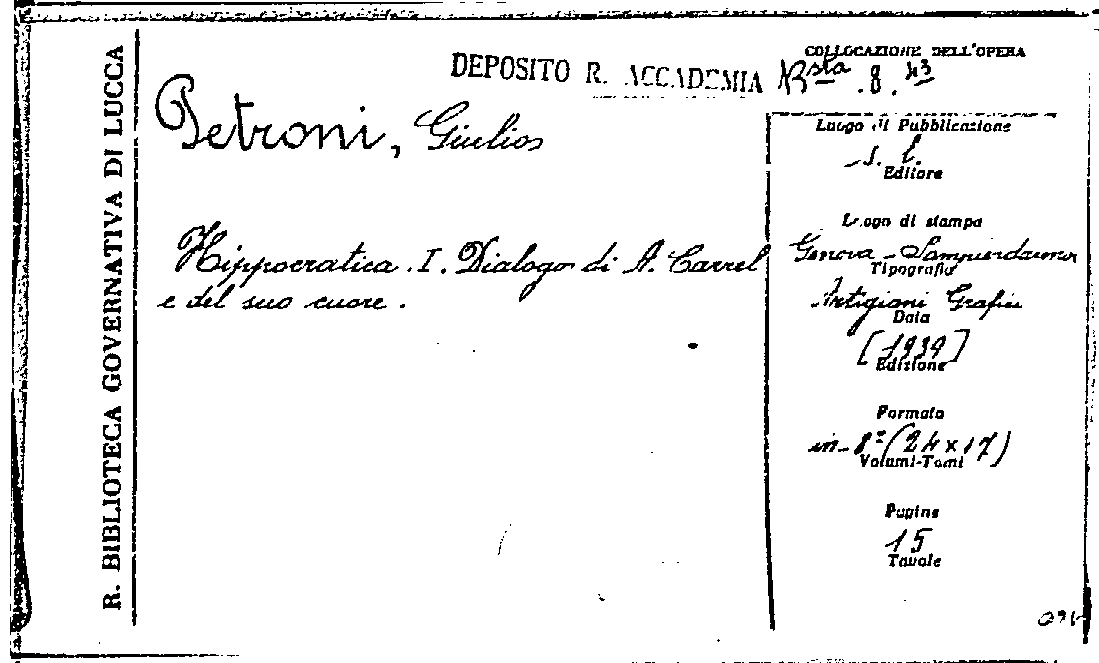 R. BIBLIOTECA GOVERNATIVA DI LUCCA
DEPOSITO R. ACCADEMIA
COLLOCAZIONE DELL'OPERA
Bsta 8. 43
Petroni, Giulios
Hippocratica. I. Dialogo di A. Carrel
e del suo cuore.
Luogo di Pubblicazione
s. l.
Editore
Luogo di stampa
Genova - Sampierdarena
Tipografia
Artigiani Grafici
Data
[1939]
Edizione
Formato
in-8° (24x17)
Volumi-Tomi
Pagine
15
Tavole